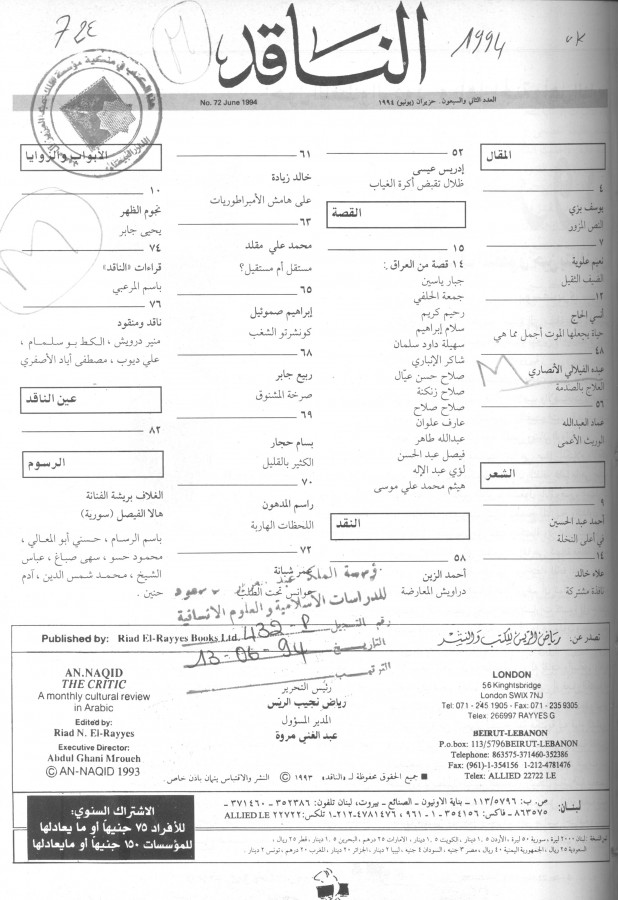 72E
M
1994
UK
الناقد
No. 72 June 1994
العدد الثاني والسبعون. حزيران (يونيو) ١٩٩٤
المقال
٤
يوسف بزي
النص المزور
٧
نعيم علوية
الضيف الثقيل
١٢
أنسي الحاج
حياة يجعلها الموت أجمل مما هي
٤٨
عبده الفيلالي الأنصاري
العلاج بالصدمة
٥٦
عماد العبدالله
الوريث الأعمى
الشعر
٩
أحمد عبد الحسين
في أعالي النخلة
١٤
علاء خالد
نافذة مشتركة
٥٢
إدريس عيسى
ظلال تقبض أكرة الغياب
القصة
١٥
١٤ قصة من العراق:
جبار ياسين
جمعة الحلفي
رحيم كريم
سلام إبراهيم
سهيلة داود سلمان
شاكر الإنباري
صلاح حسن عيّال
صلاح زنكنة
صلاح صلاح
عارف علوان
عبدالله طاهر
فيصل عبد الحسن
لؤي عبد الإله
هيثم محمد علي موسى
النقد
٥٨
أحمد الزين
دراويش المعارضة
٦١
خالد زيادة
على هامش الأمبراطوريات
٦٣
محمد علي مقلد
مستقل أم مستقيل؟
٦٥
إبراهيم صموئيل
كونشرتو الشغب
٦٨
ربيع جابر
صرخة المشنوق
٦٩
بسام حجار
الكثير بالقليل
٧٠
راسم المدهون
اللحظات الهاربة
٧٢
شبانة
الأبواب والزوايا
١٠
نجوم الظهر
يحيى جابر
٧٤
قراءات «الناقد»
باسم المرعبي
٧٦
ناقد ومنقود
منير درويش، الكط بو سلمام،
علي ديوب، مصطفى أباد الأصفري
عين الناقد
٨٢
الرسوم
الغلاف بريشة الفنانة
هالا الفيصل (سورية)
باسم الرسام، حسني أبو المعالي،
محمود حسو، سهى صباغ، عباس
الشيخ، محمد شمس الدين، آدم
حنين.
مؤسسة الملك عبد سعود
للدراسات الاسلامية والعلوم الانسانية
رقم التسجيل 432-P
التاريخ 13-06-94
الترتيب
Published by: Riad El-Rayyes Books Ltd.
تصدر عن: رياض الريس للكتب والنشر
AN.NAQID
THE CRITIC
A monthly cultural review
in Arabic
Edited by:
Riad N. El-Rayyes
Executive Director:
Abdul Ghani Mrouch
© AN-NAQID 1993
رئيس التحرير
رياض نجيب الريس
المدير المسؤول
عبد الغني مروة
LONDON
56 Knightsbridge
London SWiX 7NJ
Tel: 071 - 245 1905 - Fax: 071 - 235 9305
Telex 266997 RAYYES G
BEIRUT-LEBANON
P.o.box: 113/5796BEIRUT-LEBANON
Telephone: 863575-371460-352386
Fax: (961)-1-354156 1-212-4781476
Telex: ALLIED 22722 LE
■ جميع الحقوق محفوظة لـ «الناقد» © ١٩٩٣ النشر والاقتباس ينهان باذن خاص.
لبنـان:
ص. ب: ١١٣/٥٧٩٦ - بناية الاونيون - الصنائع - بيروت، لبنان تلفون: ٣٥٢٣٨٦ - ٣٧١٤٦٠ -
٨٦٣٥٧٥ - فاكس: ٣٥٤١٥٦-١-٩٦١ ، ٤٧٨١٤٧٦-٢١٢-١ تلكس: ALLIED LE ٢٢٧٢٢
الاشتراك السنوي:
للأفراد ٧٥ جنيهاً أو ما يعادلها
للمؤسسات ١٥٠ جنيهاً أو مايعادلها
ثمن النسخة: لبنان ٢٠٠٠ ليرة، سورية ٥٠ ليرة، الأردن ١.٥ دينار، الكويت ١.٥ دينار، الامارات ٢٥ درهم، البحرين ١.٥ دينار، قطر ٢٥ ريال،
السعودية ٢٥ ريال، الجمهورية اليمنية ٤٠ ريال، مصر ٣ جنيه، السودان ٤ جنيه، ليبيا ٢ دينار، الجزائر ٢٠ دينار، المغرب ٢٠ درهم، تونس ٢ دينار.